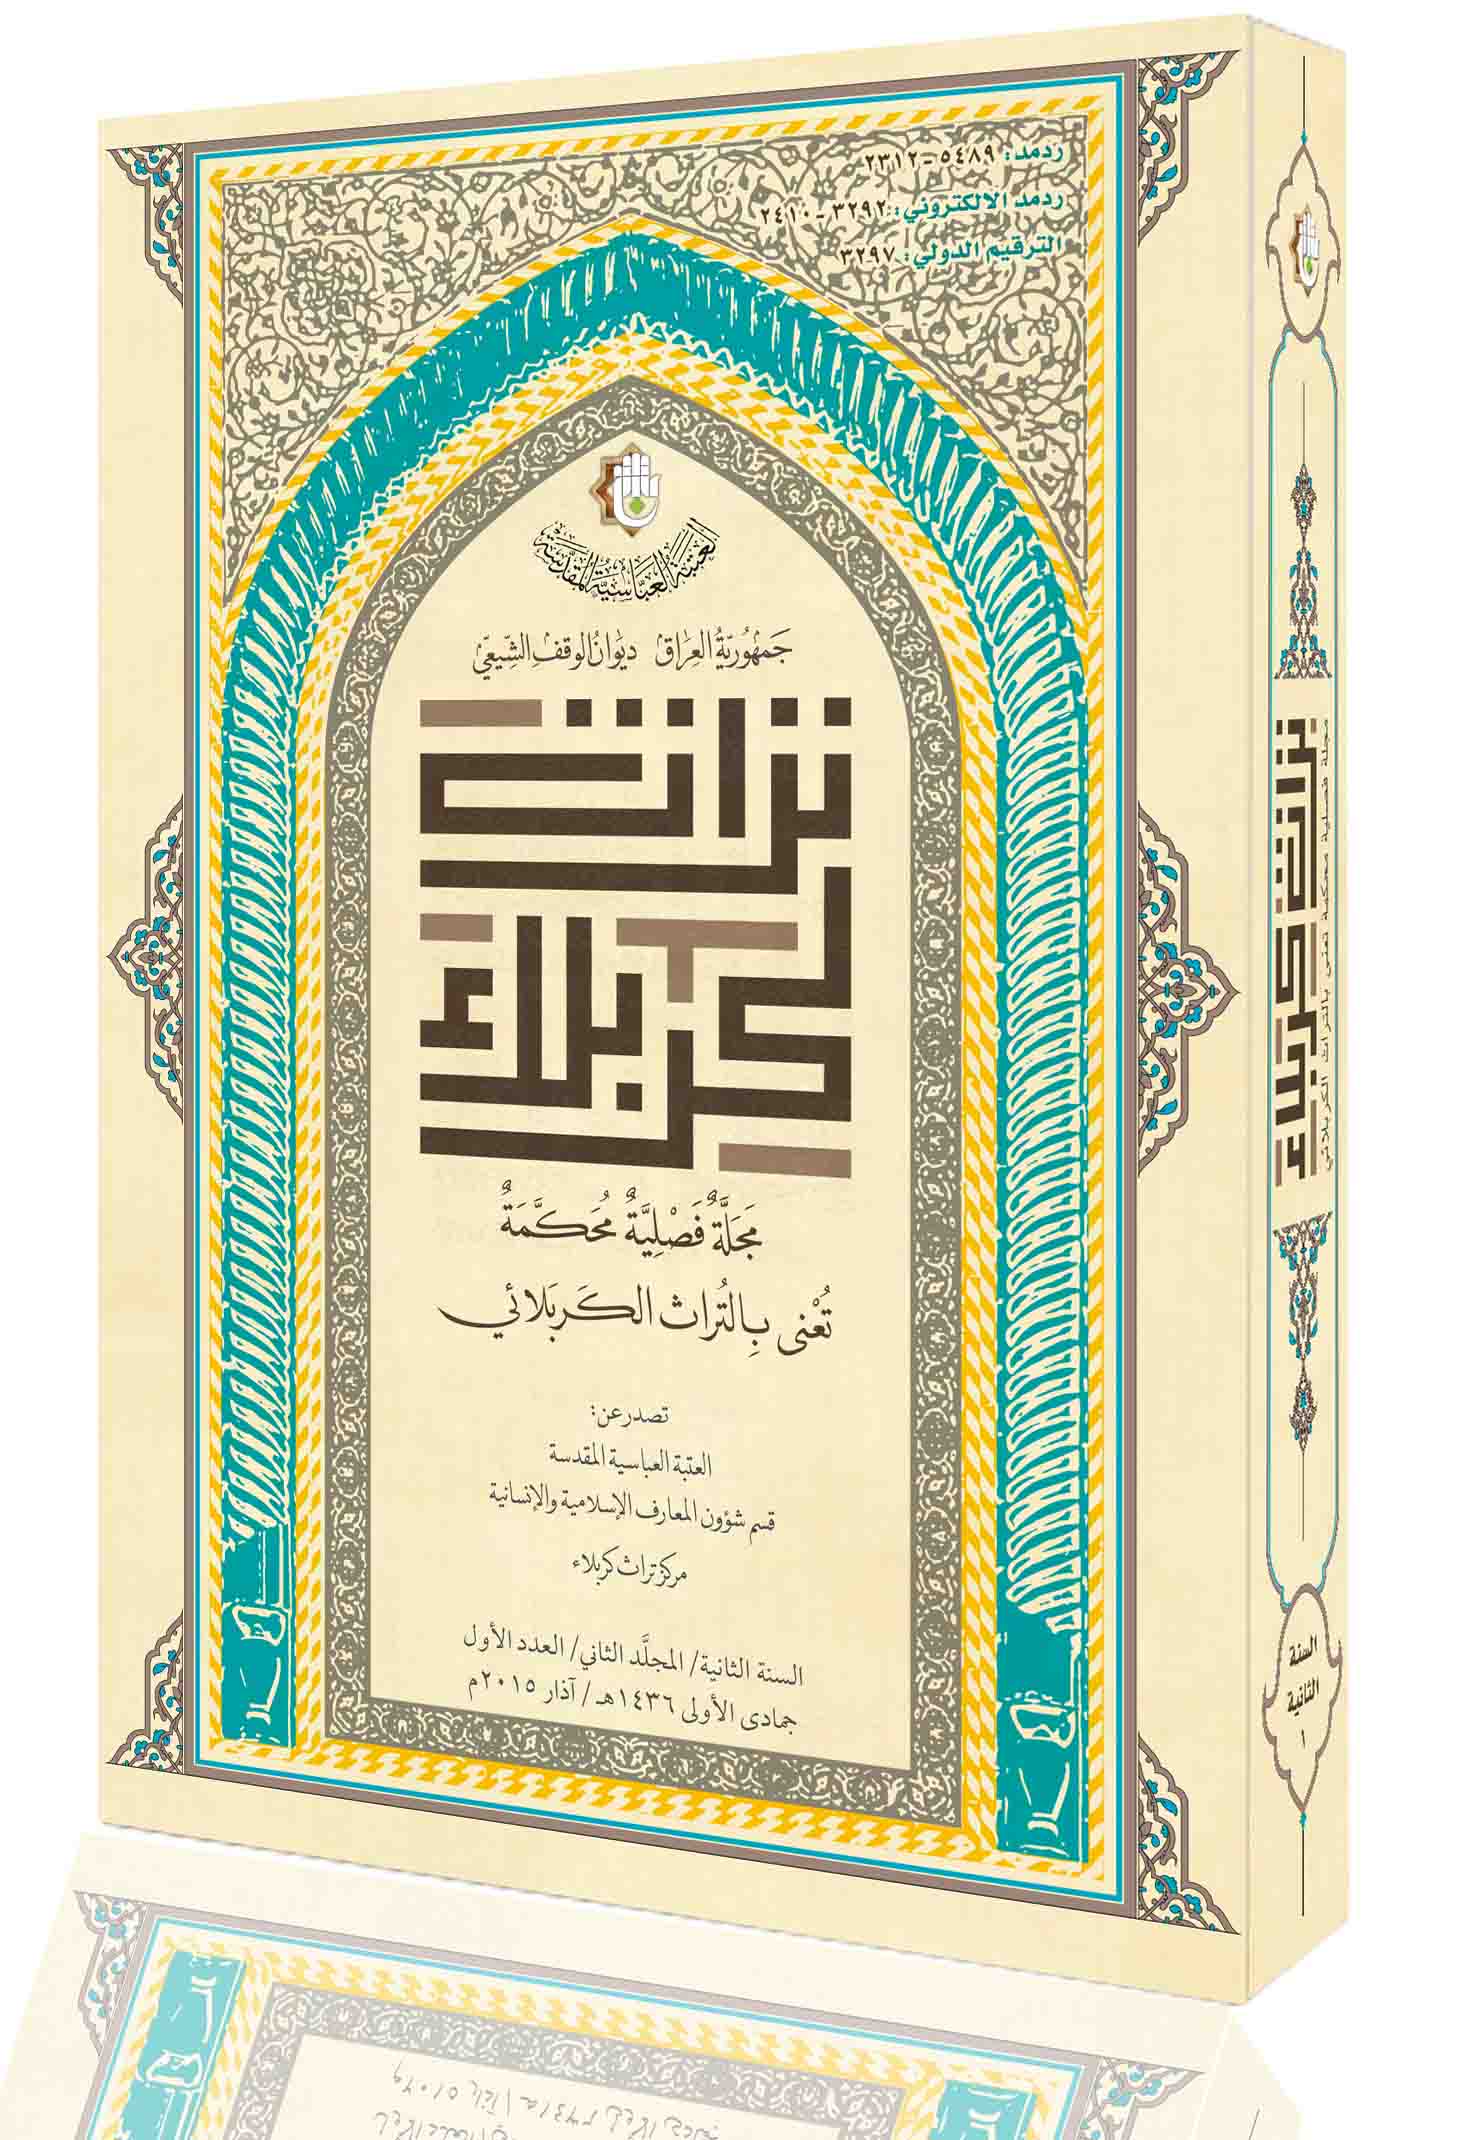 ردمد: ٥٤٨٩-٢٣١٢
ردمد الالكتروني: ٣٢٩٢-٢٤١٠
الترقيم الدولي: ٣٢٩٧
العتبة العباسية المقدسة
جَمهُوريّةُ العِراق ديوَانُ الوقفِ الشّيعيّ
تراث
كربلاء
مَجَلَّةٌ فَصْلِيَّةٌ مُحَكَّمَةٌ
تُعْنى بِالتُراث الكَربَلائي
تصدر عن:
العتبة العباسية المقدسة
قسم شؤون المعارف الإسلامية والإنسانية
مركز تراث كربلاء
السنة الثانية/ المجلَّد الثاني/ العدد الأول
جمادى الأولى ١٤٣٦هـ / آذار ٢٠١٥م
تراث كربلاء
مجلة فصلية محكمة تعنى بالتراث الكربلائي
السنة
الثانية
١